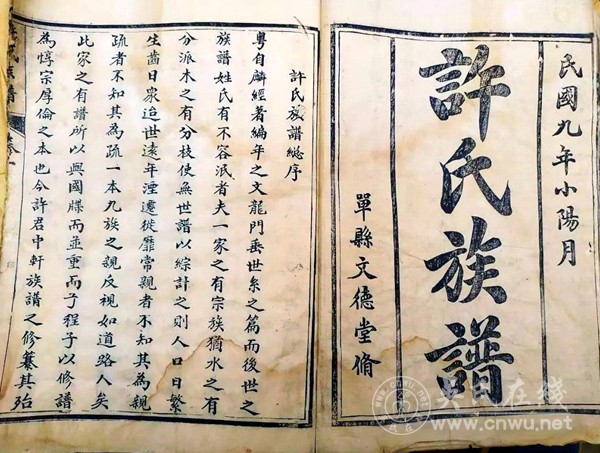 民國九年小陽月
許氏族譜
單縣文德堂脩
許氏族譜總序
粵自麟經著編年之文龍門垂世系之篇而後世之
族譜姓氏有不容泯者夫一家之有宗族猶水之有
分派木之有分枝使無世譜以綜計之則人口日繁
生齒日衆迨世遠年湮遷徙靡常親者不知其為親
疏者不知其為疏一本九族之親反視如道路人矣
此家之有譜所以與國牒而並重而子程子以修譜
為惇宗厚倫之本也今許君中軒族譜之修纂其殆
www.cnwu.net